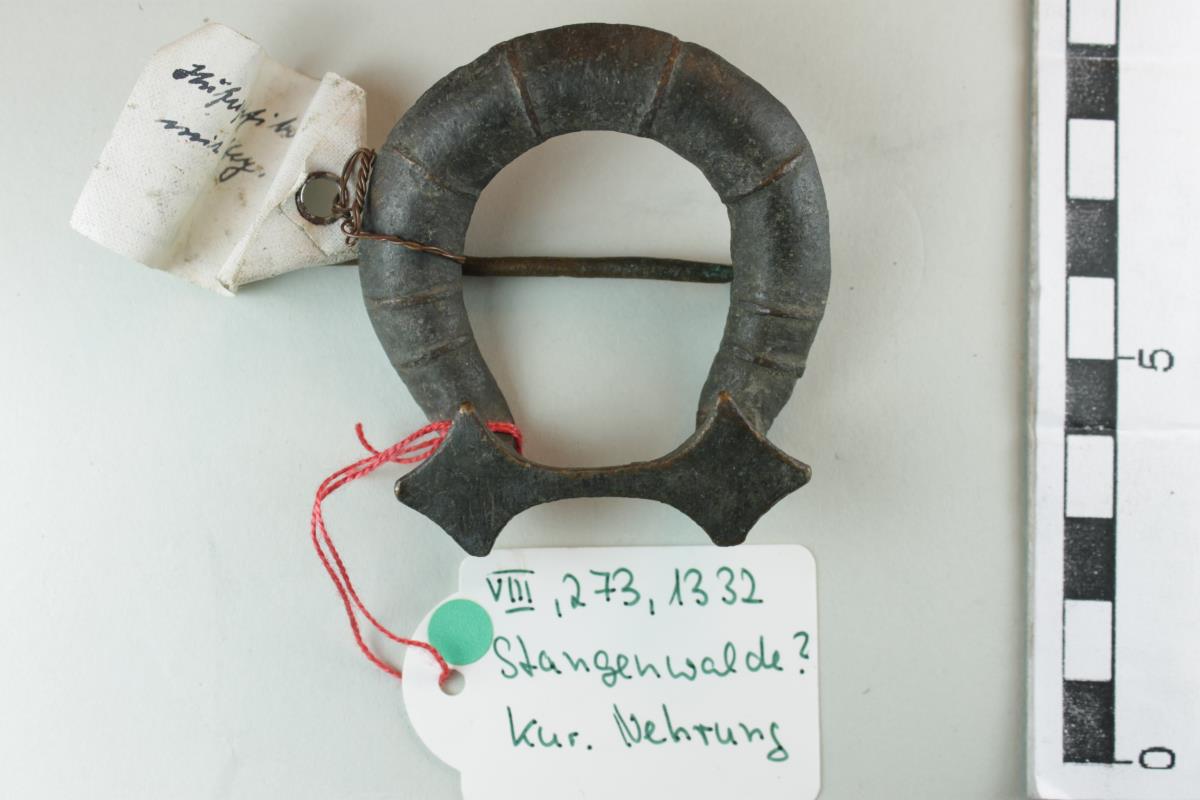 VIII, 273, 1332
Stangenwalde?
Kur. Nehrung
5
0